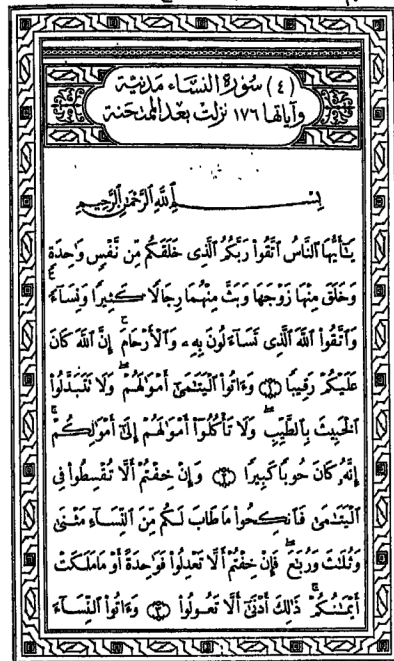 (٤) سُورَةُ النِّسَاءِ مَدَنِيَّة
وَآيَاتُهَا ١٧٦ نَزَلَتْ بَعْدَ المُمْتَحَنَة
بِسْمِ ٱللَّهِ ٱلرَّحْمَٰنِ ٱلرَّحِيمِ
يَٰٓأَيُّهَا ٱلنَّاسُ ٱتَّقُوا۟ رَبَّكُمُ ٱلَّذِى خَلَقَكُم مِّن نَّفْسٍ وَٰحِدَةٍ
وَخَلَقَ مِنْهَا زَوْجَهَا وَبَثَّ مِنْهُمَا رِجَالًا كَثِيرًا وَنِسَآءً ۚ
وَٱتَّقُوا۟ ٱللَّهَ ٱلَّذِى تَسَآءَلُونَ بِهِۦ وَٱلْأَرْحَامَ ۚ إِنَّ ٱللَّهَ كَانَ
عَلَيْكُمْ رَقِيبًا ۝١ وَءَاتُوا۟ ٱلْيَتَٰمَىٰٓ أَمْوَٰلَهُمْ ۖ وَلَا تَتَبَدَّلُوا۟
ٱلْخَبِيثَ بِٱلطَّيِّبِ ۖ وَلَا تَأْكُلُوٓا۟ أَمْوَٰلَهُمْ إِلَىٰٓ أَمْوَٰلِكُمْ ۚ
إِنَّهُۥ كَانَ حُوبًا كَبِيرًا ۝٢ وَإِنْ خِفْتُمْ أَلَّا تُقْسِطُوا۟ فِى
ٱلْيَتَٰمَىٰ فَٱنكِحُوا۟ مَا طَابَ لَكُم مِّنَ ٱلنِّسَآءِ مَثْنَىٰ
وَثُلَٰثَ وَرُبَٰعَ ۖ فَإِنْ خِفْتُمْ أَلَّا تَعْدِلُوا۟ فَوَٰحِدَةً أَوْ مَا مَلَكَتْ
أَيْمَٰنُكُمْ ۚ ذَٰلِكَ أَدْنَىٰٓ أَلَّا تَعُولُوا۟ ۝٣ وَءَاتُوا۟ ٱلنِّسَآءَ